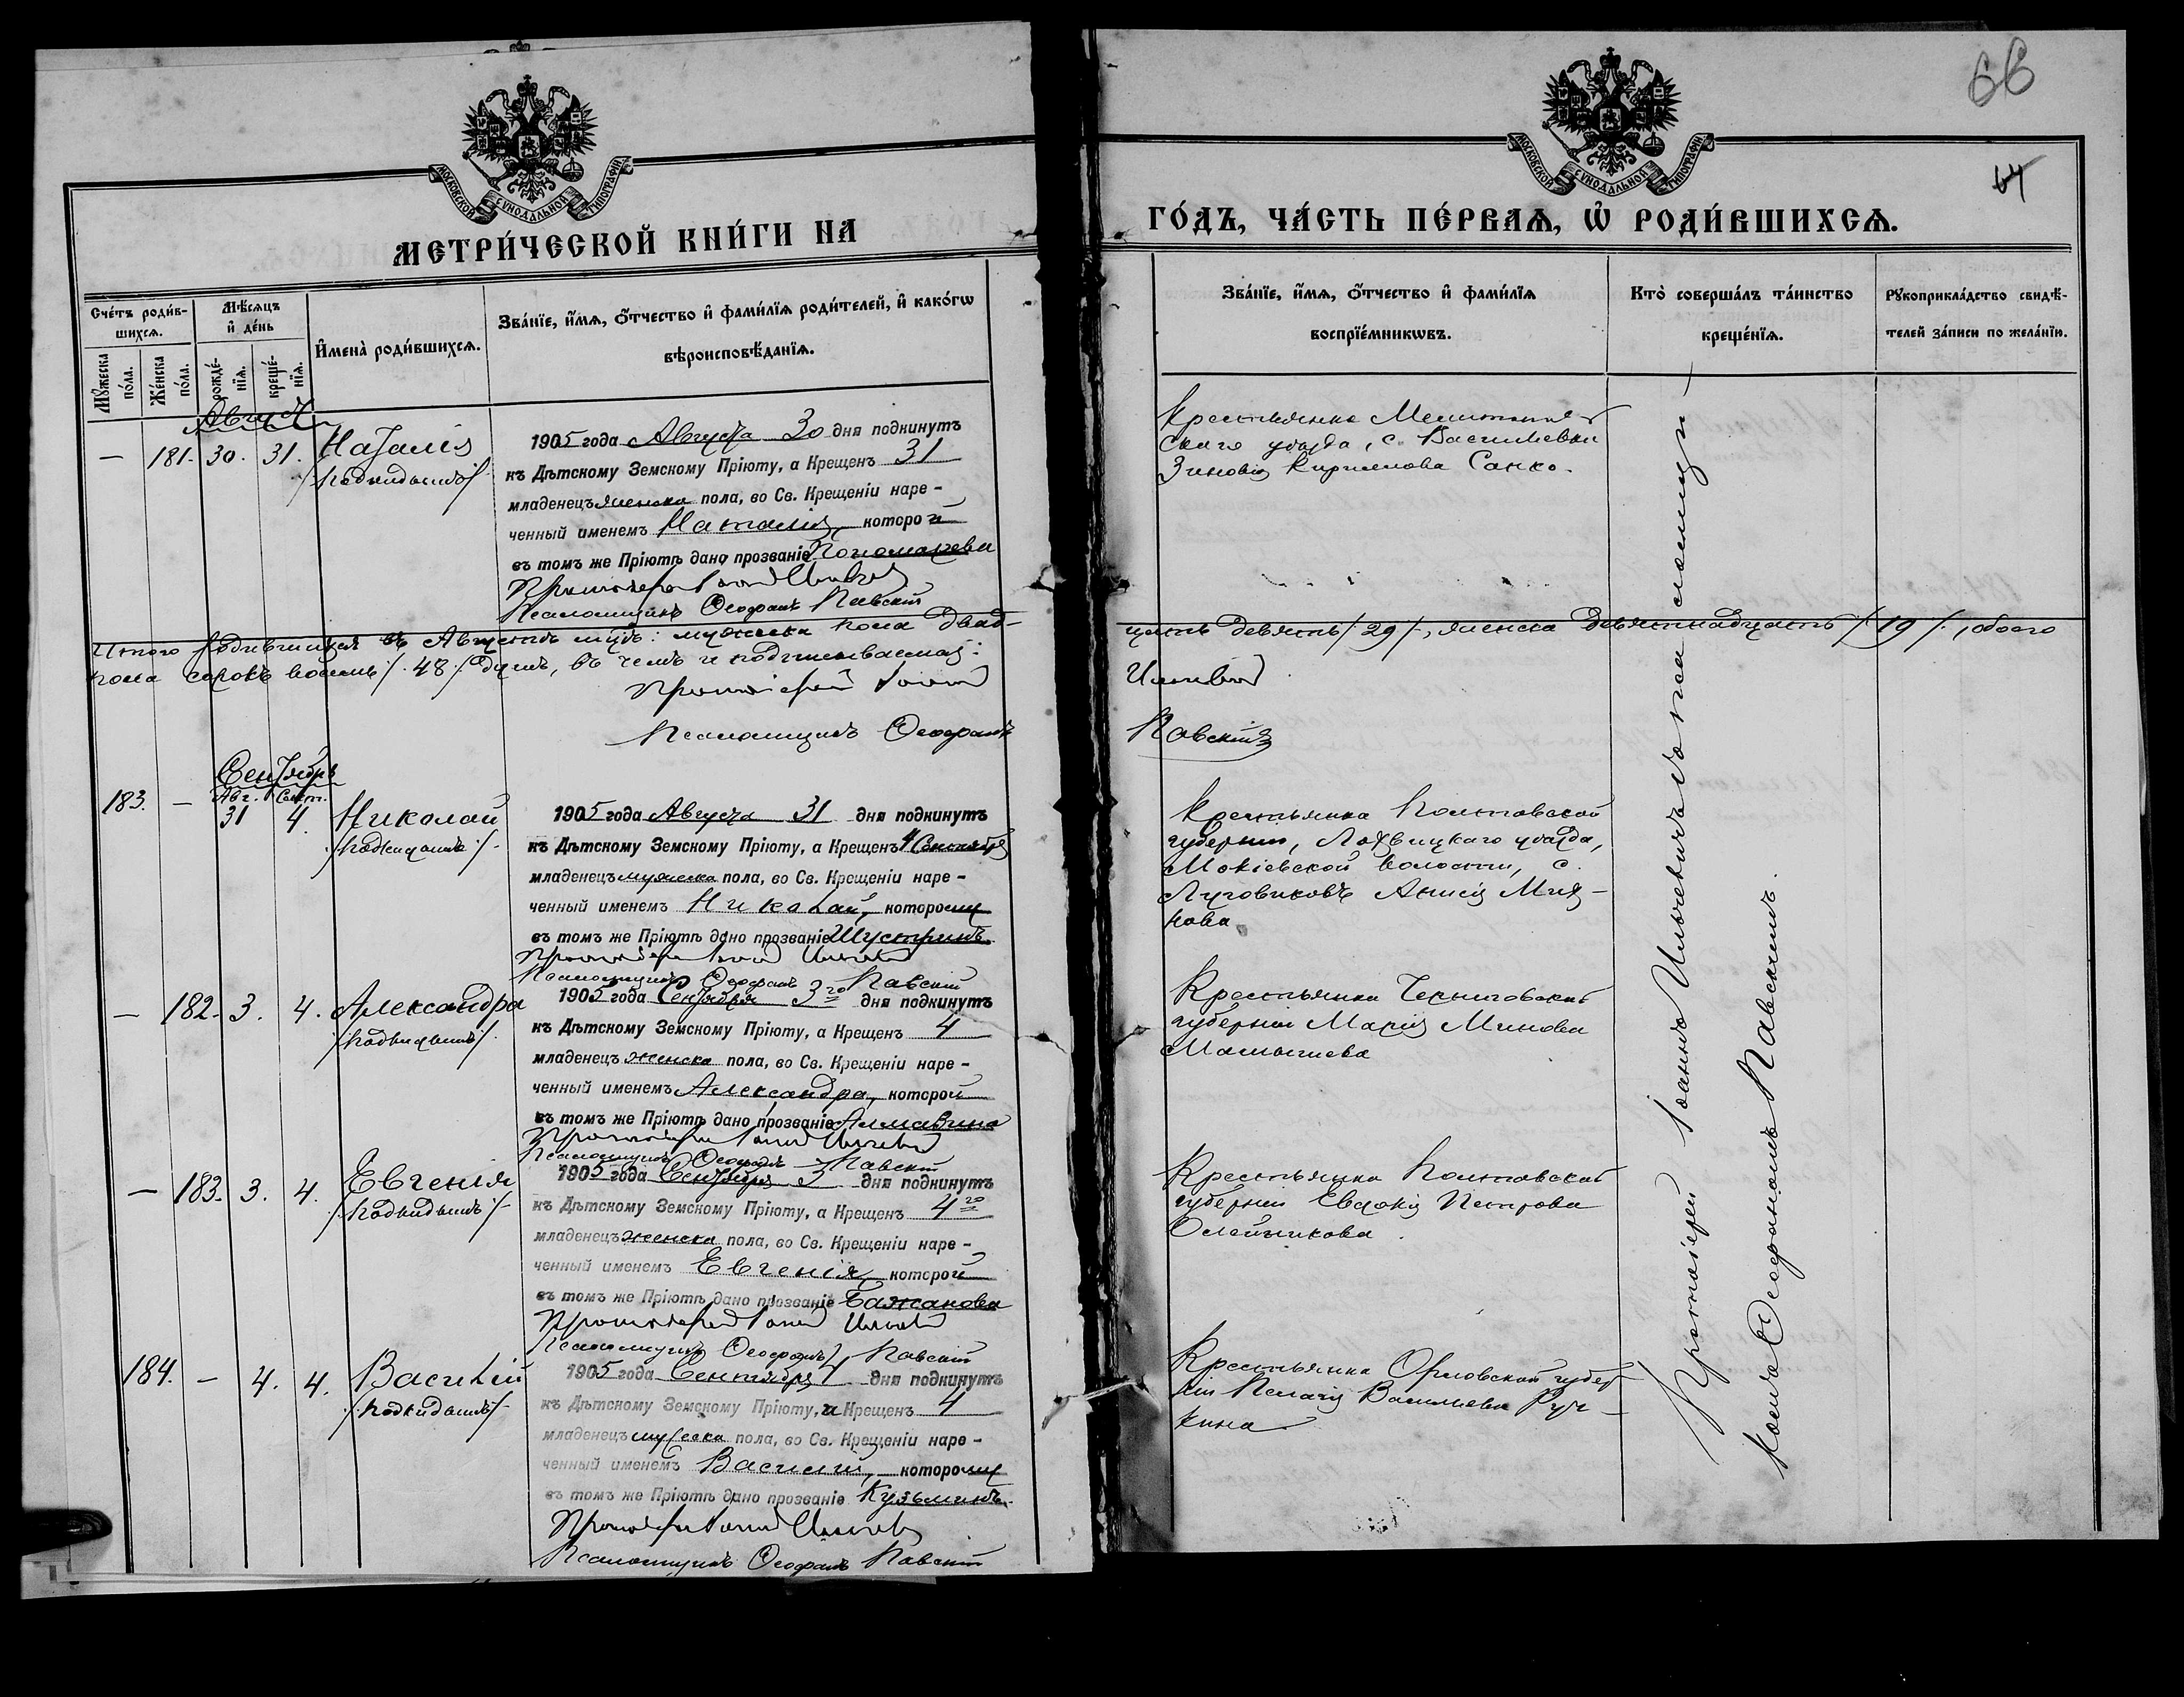 66
64
МОСКОВСКОЙ СѴНОДАЛЬНОЙ ТИПОГРАФІИ
МОСКОВСКОЙ СѴНОДАЛЬНОЙ ТИПОГРАФІИ
МЕТРИ́ЧЕСКОЙ КНИ́ГИ НА
ГО́ДЪ, ЧА́СТЬ ПЕ́РВАЯ, Ѡ҆ РОДИ́ВШИХСѦ.
Сче́тъ роди́в-
шихсѧ.
Мѣ́сѧцъ
и҆ де́нь
И҆мена̀ роди́вшихсѧ.
Зва́нїе, и҆́мѧ, ѻ҆́тчество и҆ фами́лїѧ роди́телей, и҆ како́гѡ
вѣроисповѣ́данїѧ.
Мꙋ́жеска
по́ла.
Же́нска
по́ла.
рожде́-
нїѧ.
креще́-
нїѧ.
Зва́нїе, и҆́мѧ, ѻ҆́тчество и҆ фами́лїѧ
воспрїе́мникѡвъ.
Кто̀ соверша́лъ та́инство
креще́нїѧ.
Рꙋкоприкла́дство свидѣ́-
телей за́писи по жела́нїю.
Августъ
— 181. 30. 31. Наталія
/подкидышъ/
1905 года Августа 30 дня подкинутъ
къ Дѣтскому Земскому Пріюту, а Крещенъ 31
младенецъ женска пола, во Св. Крещеніи наре-
ченный именемъ Наталія, которой
въ томъ же Пріютѣ дано прозваніе Пономарева
Протоіерей Іоаннъ Ильичевъ
Псаломщикъ Ѳеофанъ Павскій
Крестьянка Мелитополь
скаго уѣзда, с. Васильевки
Зиновія Кириллова Санко.
Итого родившихся въ Августѣ мцѣ: мужеска пола двад-
цать девять /29/, женска девятнадцать /19/, обоего
пола сорокъ восемь /48/ душъ, въ чемъ и подписываемся:
Протоіерей Іоаннъ
Ильичевъ
Псаломщикъ Ѳеофанъ
Павскій
Сентябрь
Авг. Сент.
183. — 31 4. Николай
/подкидышъ/
1905 года Августа 31 дня подкинутъ
къ Дѣтскому Земскому Пріюту, а Крещенъ 4 Сентября
младенецъ мужеска пола, во Св. Крещеніи наре-
ченный именемъ Николай, которому
въ томъ же Пріютѣ дано прозваніе Шустринъ.
Протоіерей Іоаннъ Ильичевъ
Псаломщикъ Ѳеофанъ Павскій
Крестьянка Полтавской
губерніи, Лохвицкаго уѣзда,
Мокіевской волости, с.
Луговиковъ
— 182. 3. 4. Александра
/подкидышъ/
1905 года Сентября 3го дня подкинутъ
къ Дѣтскому Земскому Пріюту, а Крещенъ 4
младенецъ женска пола, во Св. Крещеніи наре-
ченный именемъ Александра, которой
въ томъ же Пріютѣ дано прозваніе
Протоіерей Іоаннъ Ильичевъ
Псаломщикъ Ѳеофанъ Павскій
Крестьянка Черниговской
губерніи Марія Минова
— 183. 3. 4. Евгенія
/подкидышъ/
1905 года Сентября 3 дня подкинутъ
къ Дѣтскому Земскому Пріюту, а Крещенъ 4го
младенецъ женска пола, во Св. Крещеніи наре-
ченный именемъ Евгенія, которой
въ томъ же Пріютѣ дано прозваніе Бажанова
Протоіерей Іоаннъ Ильичевъ
Псаломщикъ Ѳеофанъ Павскій
Крестьянка Полтавской
губерніи Евдокія Петрова
Олейникова.
184. — 4. 4. Василій
/подкидышъ/
1905 года Сентября 4 дня подкинутъ
къ Дѣтскому Земскому Пріюту, а Крещенъ 4
младенецъ мужеска пола, во Св. Крещеніи наре-
ченный именемъ Василій, которому
въ томъ же Пріютѣ дано прозваніе Кузьминъ.
Протоіерей Іоаннъ Ильичевъ
Псаломщикъ Ѳеофанъ Павскій
Крестьянка Орловской губер
ніи Пелагія Васильева Руч-
кина
Протоіерей Іоаннъ Ильичевъ съ псаломщи-
комъ Ѳеофаномъ Павскимъ.